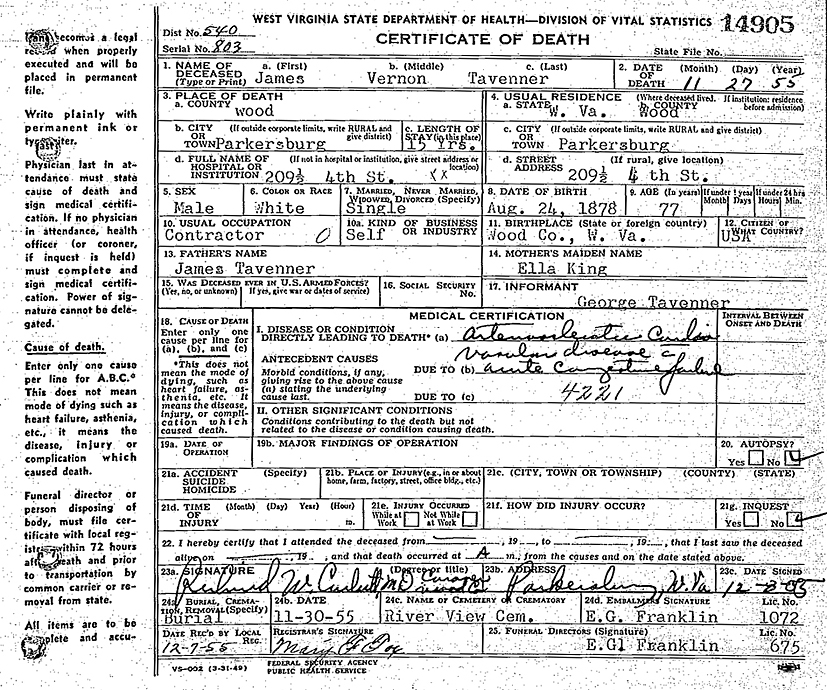 WEST VIRGINIA STATE DEPARTMENT OF HEALTH—DIVISION OF VITAL STATISTICS 14905
Dist No. 540
CERTIFICATE OF DEATH
Serial No. 803
State File No.
becomes a legal
record when properly
executed and will be
placed in permanent
file.
Write plainly with
permanent ink or
typewriter.
Physician last in at-
tendance must state
cause of death and
sign medical certifi-
cation. If no physician
in attendance, health
officer (or coroner,
if inquest is held)
must complete and
sign medical certifi-
cation. Power of sig-
nature cannot be dele-
gated.
Cause of death.
Enter only one cause
per line for A.B.C.*
This does not mean
mode of dying such as
heart failure, asthenia,
etc., it means the
disease, injury or
complication which
caused death.
Funeral director or
person disposing of
body, must file cer-
tificate with local reg-
istrar within 72 hours
after death and prior
to transportation by
common carrier or re-
moval from state.
All items are to be
complete and accu-
1. NAME OF DECEASED (Type or Print) a. (First) b. (Middle) c. (Last)
James Vernon Tavenner
2. DATE OF DEATH (Month) (Day) (Year)
11 27 55
3. PLACE OF DEATH
a. COUNTY
Wood
4. USUAL RESIDENCE (Where deceased lived. If institution: residence before admission)
a. STATE b. COUNTY
W. Va. Wood
b. CITY OR TOWN (If outside corporate limits, write RURAL and give district)
Parkersburg
c. LENGTH OF STAY (in this place)
15 Yrs.
c. CITY OR TOWN (If outside corporate limits, write RURAL and give district)
Parkersburg
d. FULL NAME OF HOSPITAL OR INSTITUTION (If not in hospital or institution, give street address or location)
209½ 4th St. XX
d. STREET ADDRESS (If rural, give location)
209½ 4 th St.
5. SEX
Male
6. COLOR OR RACE
White
7. MARRIED, NEVER MARRIED, WIDOWED, DIVORCED (Specify)
Single
8. DATE OF BIRTH
Aug. 24, 1878
9. AGE (In years)
77
If under 1 year Month Days
If under 24 hrs Hours Min.
10. USUAL OCCUPATION
Contractor 0
10a. KIND OF BUSINESS OR INDUSTRY
Self
11. BIRTHPLACE (State or foreign country)
Wood Co., W. Va.
12. CITIZEN OF WHAT COUNTRY?
USA
13. FATHER'S NAME
James Tavenner
14. MOTHER'S MAIDEN NAME
Ella King
15. WAS DECEASED EVER IN U.S. ARMED FORCES?
(Yes, no, or unknown) (If yes, give war or dates of service)
16. SOCIAL SECURITY No.
17. INFORMANT
George Tavenner
18. CAUSE OF DEATH
Enter only one cause per line for (a), (b), and (c)
*This does not mean the mode of dying, such as heart failure, asthenia, etc. It means the disease, injury, or complication which caused death.
MEDICAL CERTIFICATION
INTERVAL BETWEEN ONSET AND DEATH
I. DISEASE OR CONDITION
DIRECTLY LEADING TO DEATH* (a) Arteriosclerotic Cardio
vascular disease c
ANTECEDENT CAUSES
Morbid conditions, if any, giving rise to the above cause (a) stating the underlying cause last.
DUE TO (b) acute Congestive failure
DUE TO (c) 4221
II. OTHER SIGNIFICANT CONDITIONS
Conditions contributing to the death but not
related to the disease or condition causing death.
19a. DATE OF OPERATION
19b. MAJOR FINDINGS OF OPERATION
20. AUTOPSY?
Yes No
21a. ACCIDENT SUICIDE HOMICIDE (Specify)
21b. PLACE OF INJURY (e.g., in or about home, farm, factory, street, office bldg., etc.)
21c. (CITY, TOWN OR TOWNSHIP) (COUNTY) (STATE)
21d. TIME OF INJURY (Month) (Day) (Year) (Hour) m.
21e. INJURY OCCURRED
While at Work Not While at Work
21f. HOW DID INJURY OCCUR?
21g. INQUEST
Yes No
22. I hereby certify that I attended the deceased from , 19 , to , 19 , that I last saw the deceased
alive on , 19 , and that death occurred at A m., from the causes and on the date stated above.
23a. SIGNATURE (Degree or title)
Richard W. Corbitt, MD Coroner
23b. ADDRESS
Parkersburg, W. Va
23c. DATE SIGNED
12-3-55
24a. BURIAL, CREMATION, REMOVAL (Specify)
Burial
24b. DATE
11-30-55
24c. NAME OF CEMETERY OR CREMATORY
River View Cem.
24d. EMBALMER'S SIGNATURE Lic. No.
E.G. Franklin 1072
DATE REC'D BY LOCAL REG.
12-7-55
REGISTRAR'S SIGNATURE
Mary F. Fox
25. FUNERAL DIRECTORS (Signature) Lic. No.
E.Gl Franklin 675
VS-002 (3-31-49) FEDERAL SECURITY AGENCY
PUBLIC HEALTH SERVICE